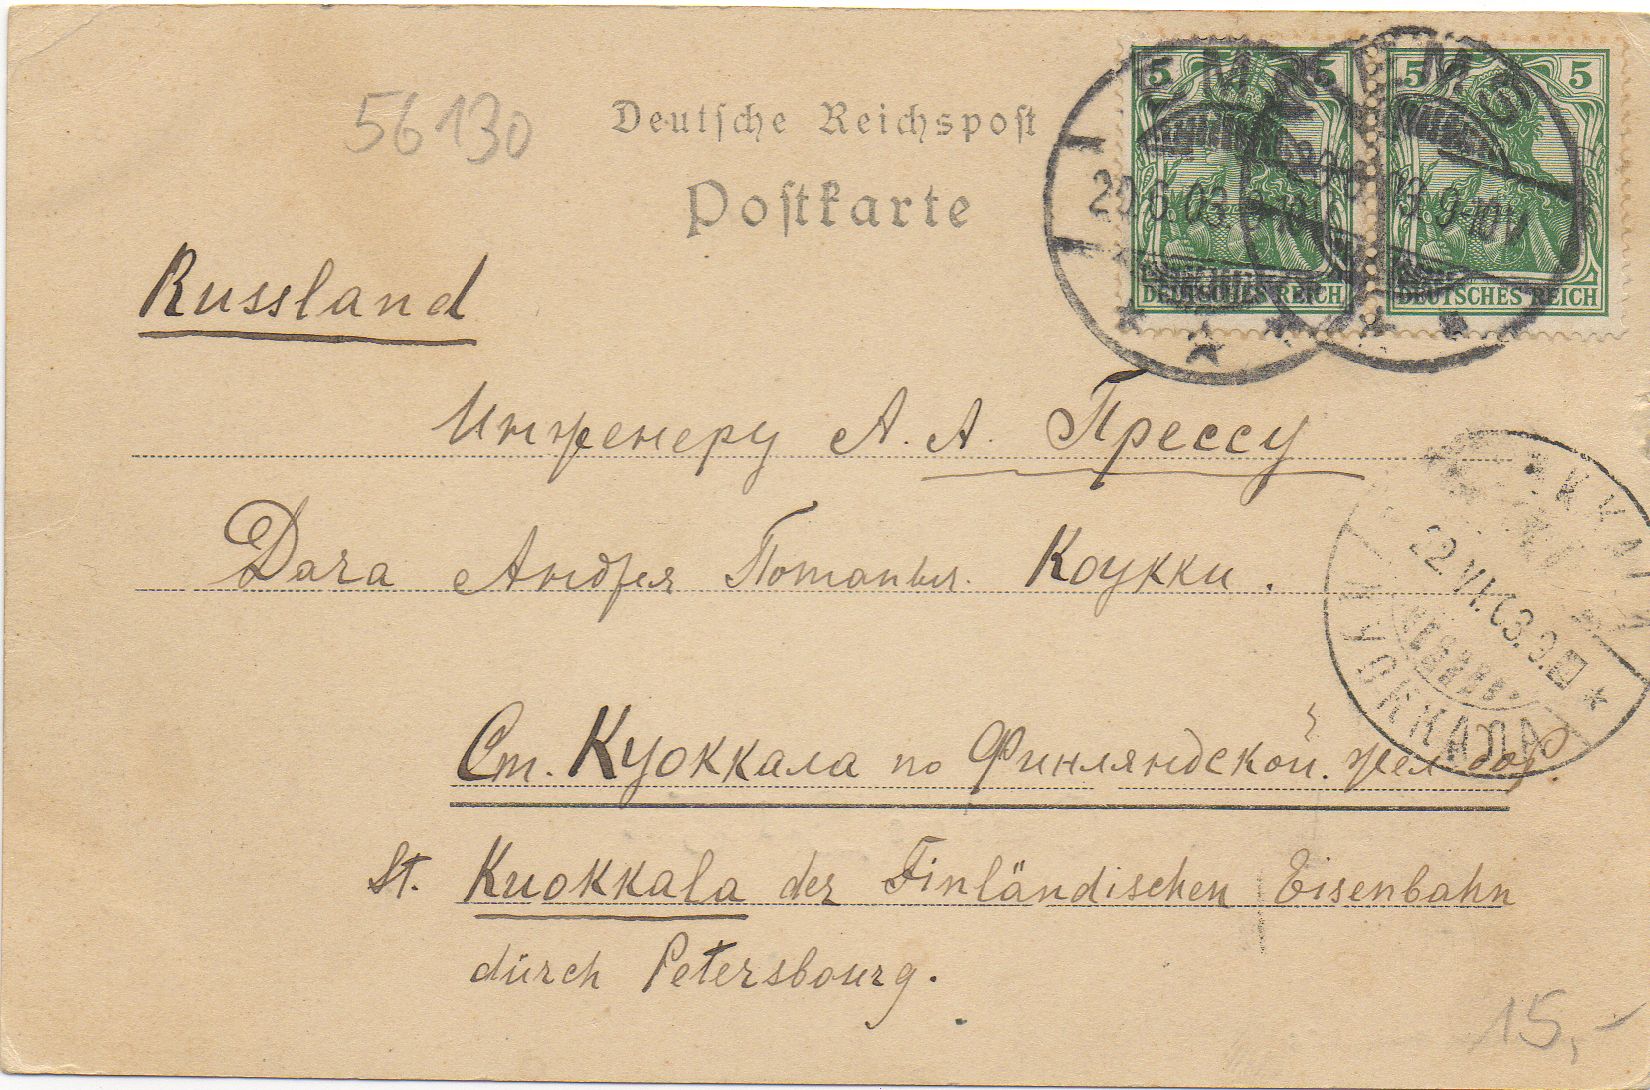 56130
Deutsche Reichspost
Postkarte
5 5 5 5
EMS EMS
20.6.03. 9-10V
9-10V
DEUTSCHES REICH DEUTSCHES REICH
Russland
Инженеру А. А. Прессу
Дача Андрея Потапыч. Коукки.
22.VI.03.
KUOKKALA
Ст. Куоккала по Финляндской. жел. дор.
St. Kuokkala der Finländischen Eisenbahn
dürch Petersbourg.
15,-